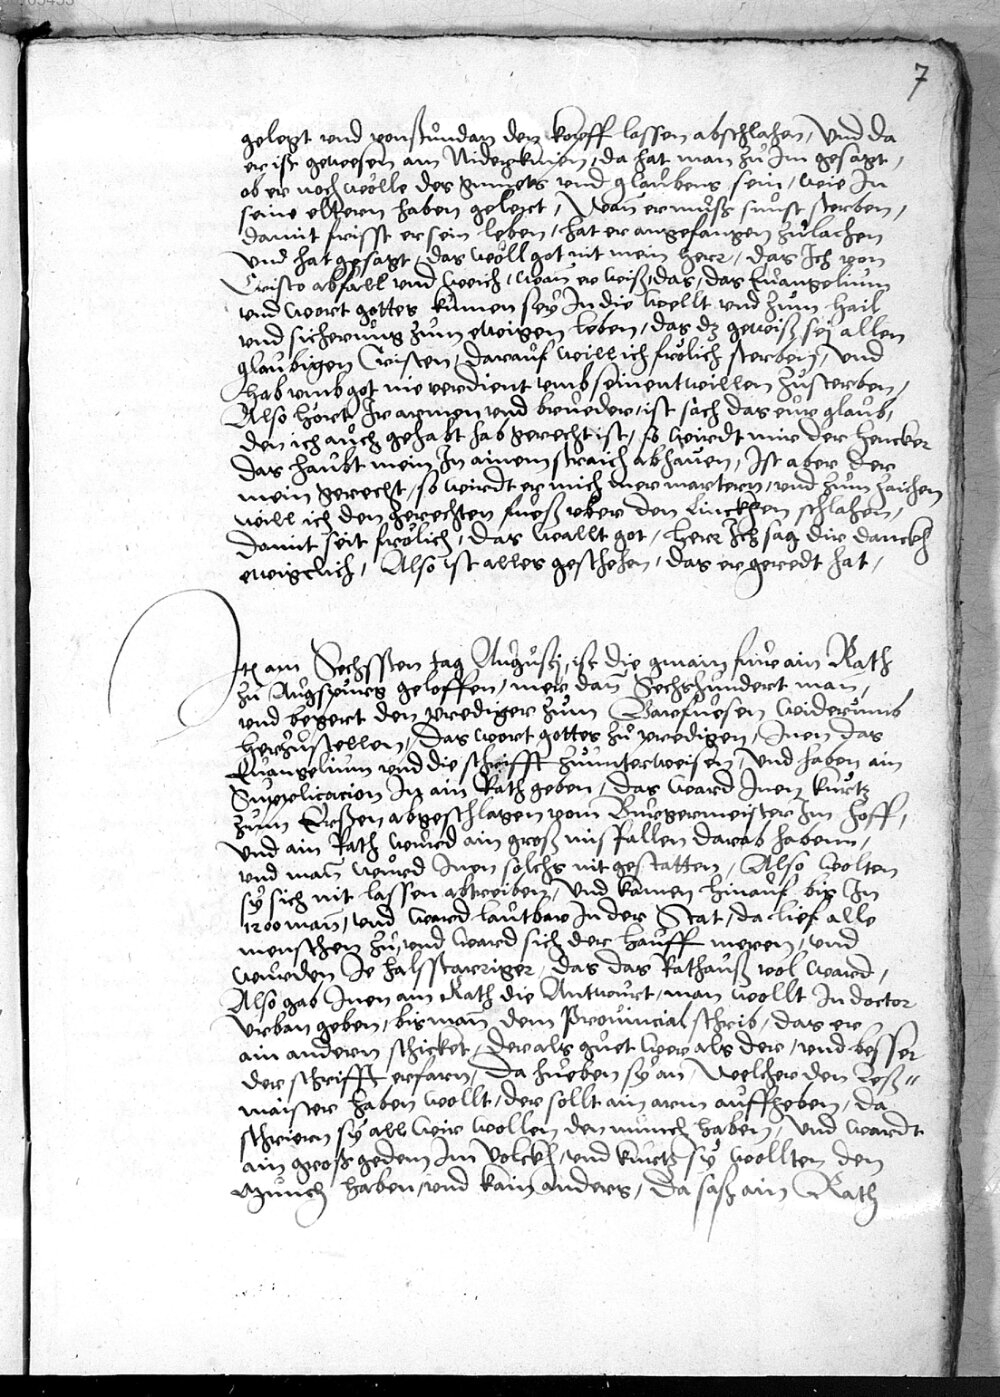 7
gelegt vnd vonstundan den kopff lassen abschlahen, Vnd da
er ist gewesen am Niderknien, da hat man zu Im gesagt,
ob er noch wölle des gmuets vnd glaubens sein, wie In
seine elltern haben gelert, Wan er muss sunst sterben,
damit frisst er sein leben, hat er angefangen zulachen
Vnd hat gesagt, das wöll got nit mein herr, das Ich von
Cristo abfall vnd weich, wan er weiss, das, das Euangelium
vnd wort gottes kumen seÿ In die wellt vnd zum hail
vnd sicherung zum ewigen leben, das dz gewiss seÿ allen
glaubigen Cristen, darauf will ich frölich sterben, Vnd
hab vmb got nie verdient vmb seinentwillen zusterben,
Also hört Ir armen vnd brueder, ist sach das eur glaub,
den ich auch gehabt hab gerecht ist, so wirdt mir der hencker
das haubt mein In ainem straich abhauen, Ist aber der
mein gerecht, so wirdt er mich mer martern, vnd zum zaichen
will ich den gerechten fuess vber den Linckhen schlahen,
damit seit frölich, das wallt got, herr Ich sag dir danckh
ewigclich, Also ist alles geschehen, das er geredt hat,
Itē am Sechssten tag Augustj, ist die gmain fur ain Rath
zu Augspurg geloffen, mer dan̄ Sechshundert man,
vnd begert den prediger zum Barfuesen widerumb
herzustellen, das wort gottes zu predigen, Inen das
Euangelium vnd die schrifft zuunterweisen, Vnd haben ain
Supplicacion In ain Rath geben, das ward Inen kurtz
zum Ersten abgeschlagen vom Burgermeister Im hoff,
Vnd ain Rath wurd ain gross missfallen darab haben,
vnd man̄ wurd Inen solchs nit gestatten, Also wolten
sÿ sich nit lassen abtreiben, Vnd kamen hinauf bis In
1200 man̄, vnd ward lautbar In der Stat, da lief alle
menschen zu, vnd ward sich der hauff meren, vnd
wurden Je halsstarriger, das das Rathauss vol ward,
Also gab Inen ain Rath die Antwurt, man wollt In doctor
Vrban geben, bis man̄ dem Prouincial schrib, das er
ain andern schicket, der als guet wer als der, vnd besser
der schrifft erfarn, Da hueben sÿ an, Welcher den Less„
maister haben wollt, der sollt ain arm auffheben, da
schriern sÿ all wir wollen den münch haben, Vnd wardt
ain gross gedem Im Volckh, vnd kurtz sÿ wollten den
Munch haben, vnd kain anders, Da sass ain Rath